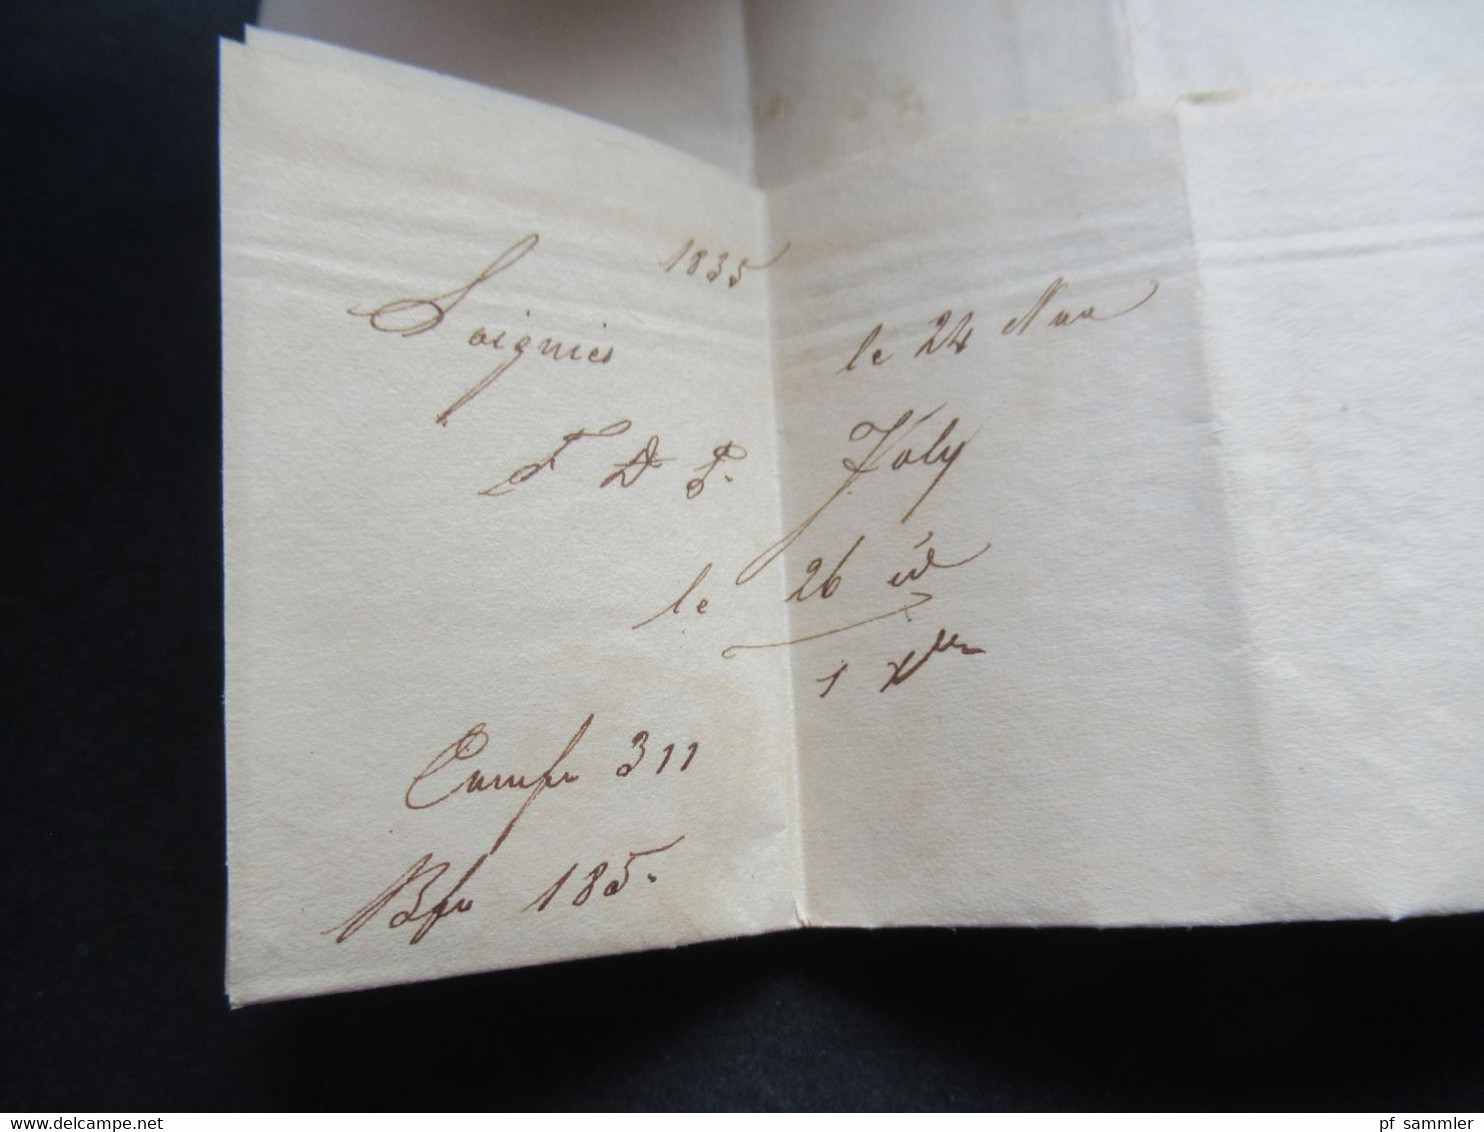 1835
Soignies le 24 Nov
F D P. Joly
le 26 id
1 Xbre
311
185.
www.delcampe.net
pf_sammler